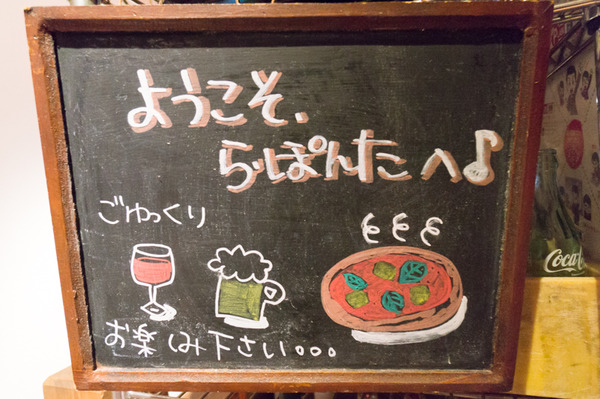 ようこそ、
らぽんたへ♪
ごゆっくり
お楽しみ下さい。。。
Coca